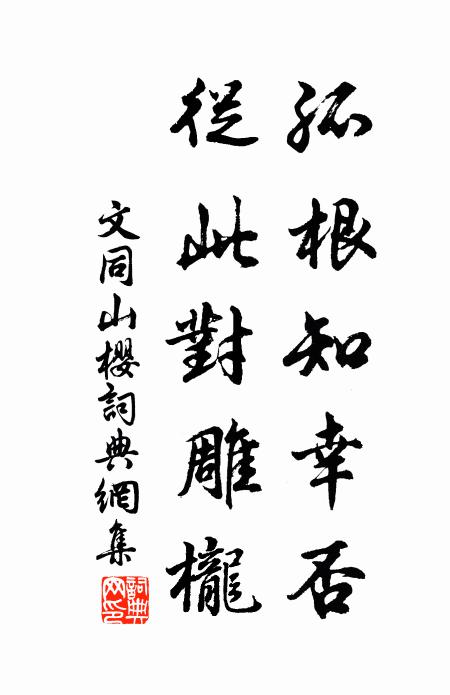 孤根知幸否
從此對雕櫳
文同山櫻詞典網集
詞典網印